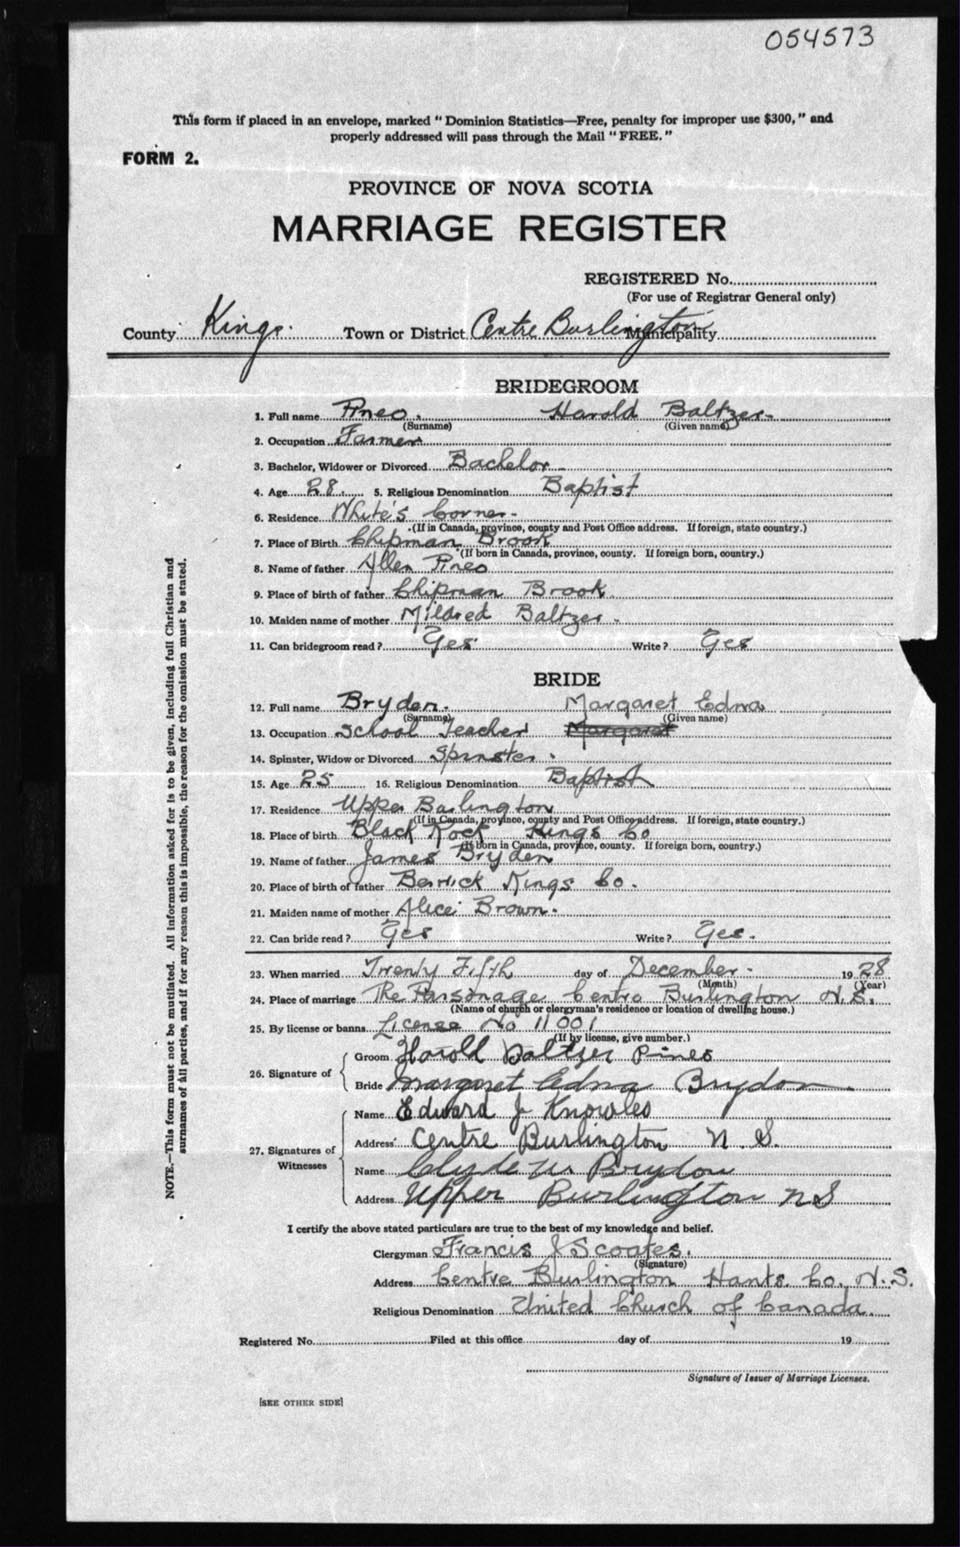 054573
This form if placed in an envelope, marked "Dominion Statistics—Free, penalty for improper use $300," and
properly addressed will pass through the Mail "FREE."
FORM 2.
PROVINCE OF NOVA SCOTIA
MARRIAGE REGISTER
REGISTERED No.
(For use of Registrar General only)
County Kings. Town or District Centre Burlington Municipality
BRIDEGROOM
1. Full name Pineo. Harold Baltzer.
(Surname) (Given name)
2. Occupation Farmer
3. Bachelor, Widower or Divorced Bachelor
4. Age 28. 5. Religious Denomination Baptist
6. Residence White's Corner.
(If in Canada, province, county and Post Office address. If foreign, state country.)
7. Place of Birth Chipman Brook
(If born in Canada, province, county. If foreign born, country.)
8. Name of father Allen Pineo
9. Place of birth of father Chipman Brook.
10. Maiden name of mother Mildred Baltzer.
11. Can bridegroom read? Yes Write? Yes
BRIDE
12. Full name Bryden. Margaret Edna
(Surname) (Given name)
13. Occupation School Teacher Margaret
14. Spinster, Widow or Divorced Spinster.
15. Age 25 16. Religious Denomination Baptist
17. Residence Upper Burlington
(If in Canada, province, county and Post Office address. If foreign, state country.)
18. Place of birth Black Rock Kings Co
(If born in Canada, province, county. If foreign born, country.)
19. Name of father James Bryden
20. Place of birth of father Berwick Kings Co.
21. Maiden name of mother Alice Brown.
22. Can bride read? Yes Write? Yes.
23. When married Twenty Fifth day of December. 19 28
(Month) (Year)
24. Place of marriage The Parsonage Centre Burlington N.S.
(Name of church or clergyman's residence or location of dwelling house.)
25. By license or banns License No 11001
(If by license, give number.)
26. Signature of
Groom Harold Baltzer Pineo
Bride Margaret Edna Brydon
27. Signatures of Witnesses
Name Edward J Knowles
Address Centre Burlington N.S.
Name Clyde Brydon
Address Upper Burlington NS
I certify the above stated particulars are true to the best of my knowledge and belief.
Clergyman Francis J Scoates.
(Signature)
Address Centre Burlington Hants. Co. N.S.
Religious Denomination United Church of Canada.
Registered No. Filed at this office day of 19
Signature of Issuer of Marriage Licenses.
[SEE OTHER SIDE]
NOTE.—This form must not be mutilated. All information asked for is to be given, including full Christian and
surnames of all parties, and if for any reason this is impossible, the reason for the omission must be stated.